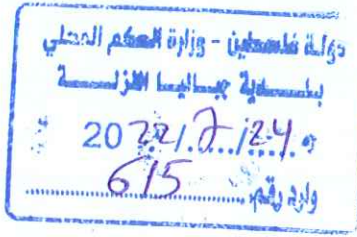 دولة فلسطين - وزارة الحكم المحلي
بلدية جباليا النزلة
2022/2/24
وارد رقم 615